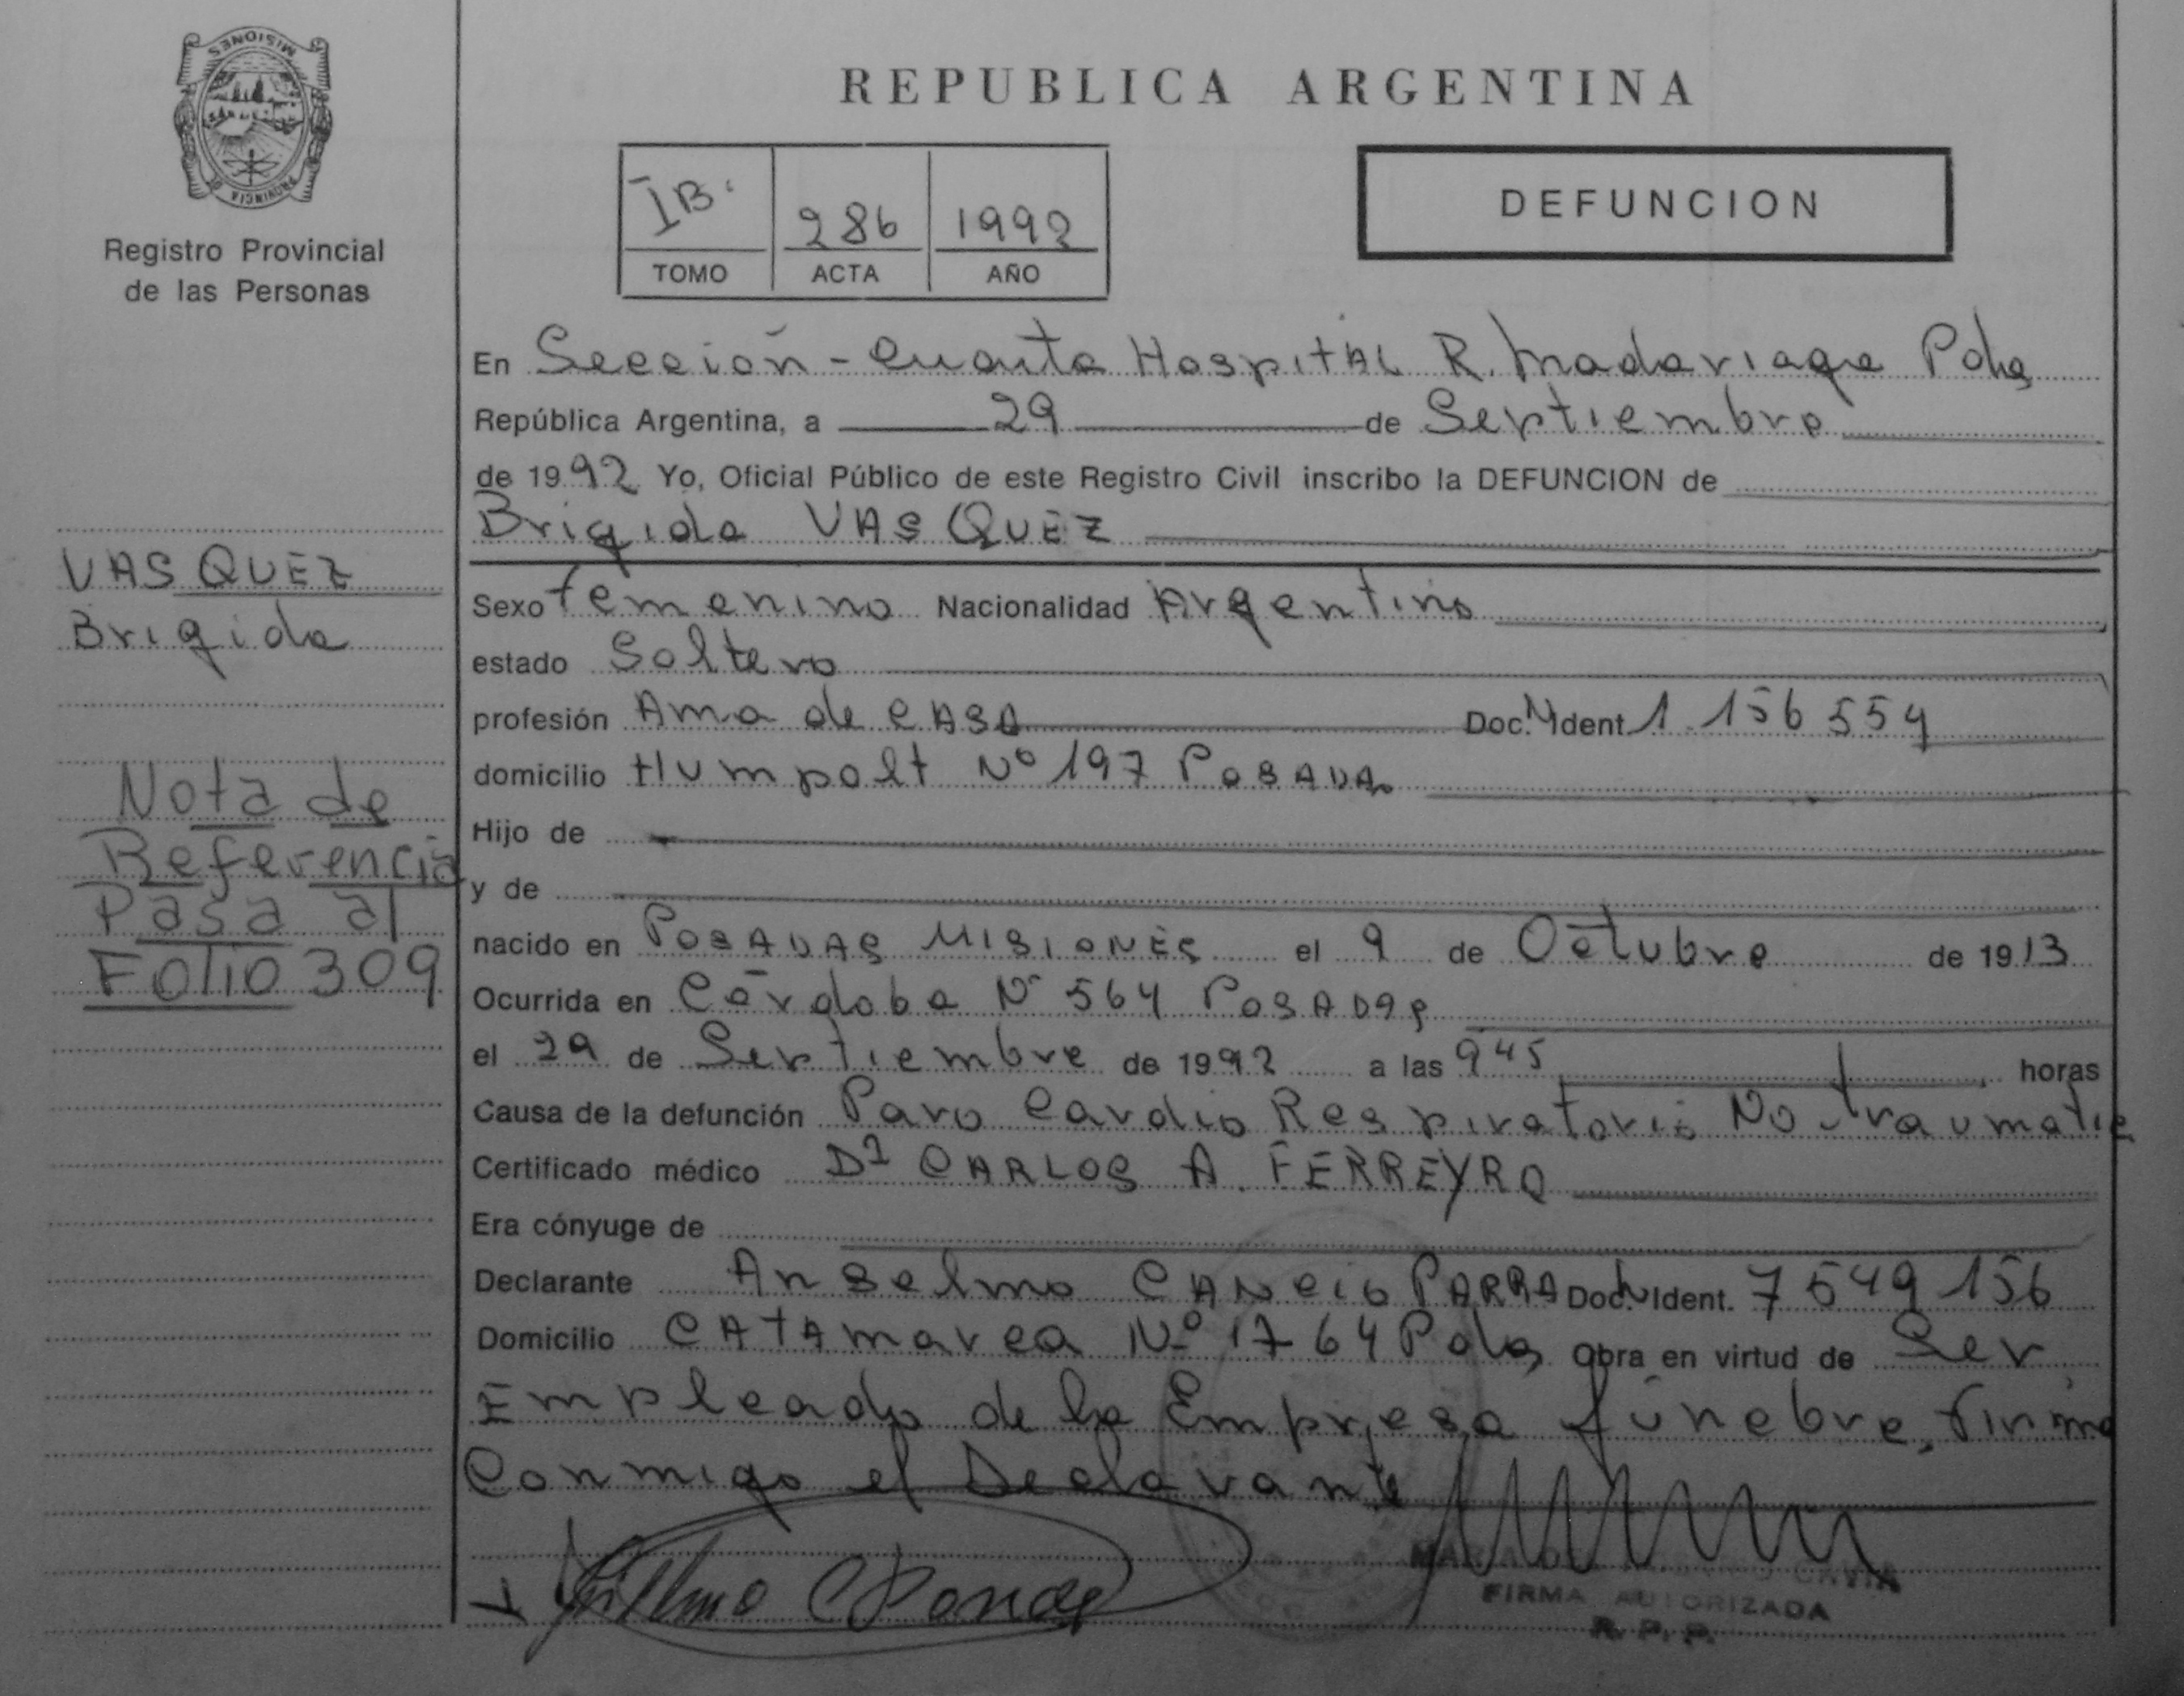 PROVINCIA DE MISIONES
Registro Provincial
de las Personas
REPUBLICA ARGENTINA
IB. 286 1992
TOMO ACTA AÑO
DEFUNCION
En Sección - Cuarta Hospital R. Madariaga Pdas
República Argentina, a 29 de Septiembre
de 1992 Yo, Oficial Público de este Registro Civil inscribo la DEFUNCION de
Brigida VASQUEZ
VASQUEZ
Brigida
Nota de
Referencia
Pasa al
Folio 309
Sexo femenino Nacionalidad Argentina
estado Soltera
profesión Ama de CASA Doc. N Ident. 1.156554
domicilio Humpolt Nº 197 POSADAS
Hijo de
y de
nacido en POSADAS MISIONES el 9 de Octubre de 1913
Ocurrida en Córdoba Nº 564 POSADAS
el 29 de Septiembre de 1992 a las 9 45 horas
Causa de la defunción Paro Cardio Respiratorio No traumatic
Certificado médico Dr CARLOS A. FERREYRA
Era cónyuge de
Declarante Anselmo CANCIO PARRA Doc. N Ident. 7549156
Domicilio CATAmarca Nº 1764 Pdas Obra en virtud de Ser
Empleado de la Empresa fúnebre, firma
Conmigo el Declarante
FIRMA AUTORIZADA
R. P. P.